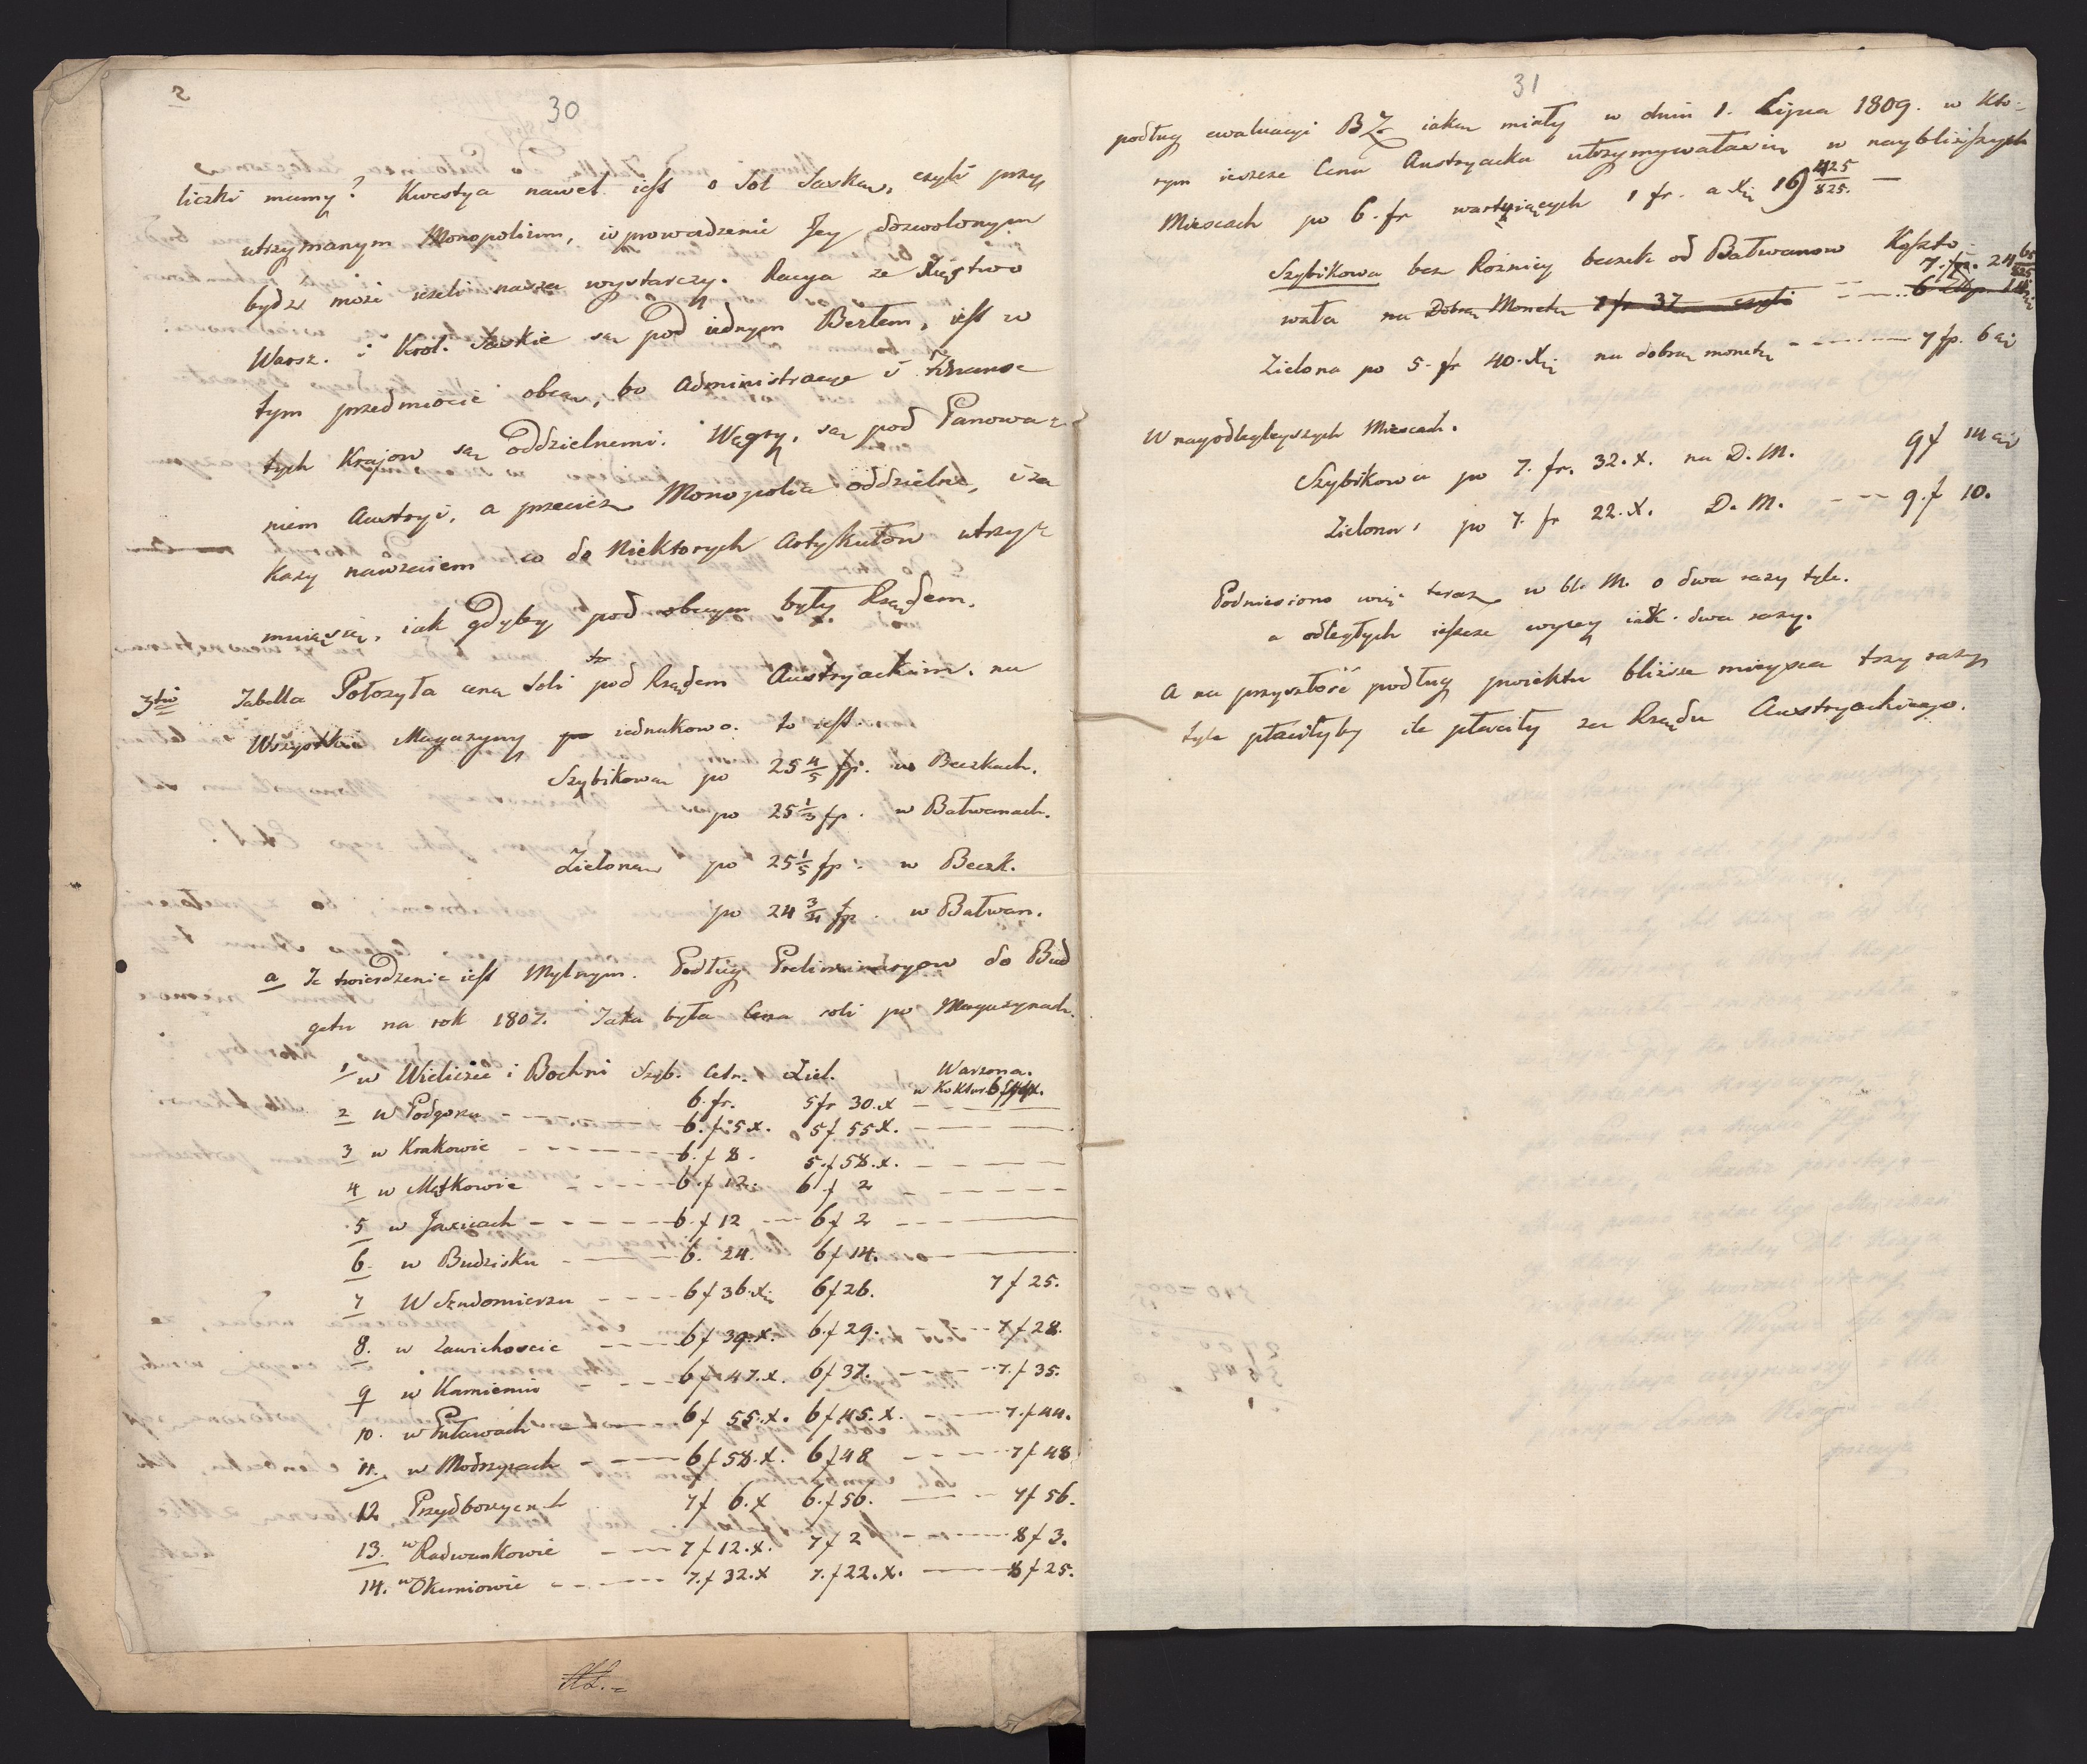 2
30
liczki mamy? Kwestya nawet iest o Sol Saską, czyli przy
utrzymanym Monopolium, i wprowadzenie Jey dozwolonym
bydz może ieżeli nasza wystarczy. Racya że Xięstwo
Warsz. i Krol. Saskie są pod iednym Berłem, iest w
tym przedmiocie obcą, bo Administracye i Finanse
tych Krajow są Oddzielnemi. Węgry, są pod Panowa-
niem Austryi, a przecież Monopolia oddzielne, i za
kazy nawzaiem co do Niektorych Artykułow utrzy-
muią się, iak gdyby pod obcym były Rządem.
3tio Tabella Położyła cenę Soli pod Rządem Austryackim. na
Wszystkie Magazyny jednakowo. to iest.
Szybikową po 25 4/5 fp. w Beczkach.
po 25 1/3 fp. w Bałwanach.
Zieloną po 25 1/5 fp. w Beczk.
po 24 3/4 fp. w Bałwan.
a Te twierdzenie iest Mylnym. Podług Preliminaryow do Bud
getu na rok 1807. Taka była Cena soli po Magazynach.
1 w Wieliczce i Bochni Szyb. Cetn. Ziel. Warzona.
6. fr. 5 fr 30. x
2 w Podgorzu 6. f. 5 x. 5 f 55 x.
3 w Krakowie 6. f 8. 5. f 58. x.
4 w Mętkowie 6. f 12. 6 f 2
5 w Jaxicach 6. f 12 6 f 2
6. w Budzisku 6. 24. 6 f 14.
7 W Sendomierzu 6 f 36. x 6 f 26. 7 f 25.
8. w Zawichoscie 6 f 39. x. 6. f 29. 7 f 28.
9 w Kamieniu 6 f 47. x. 6 f 37. 7. f 35.
10. w Puławach 6 f 55. x. 6 f 45. x. 7. f 44.
11. w Modrzycach 6 f 58. x. 6 f 48 7 f 48
12 Przydborzycach 7 f 6. x 6. f 56. 7 f 56.
13. w Radwankowie 7 f 12. x. 7 f 2 8 f 3.
14. w Okuniowie 7. f 32. x 7. f 22. x. 8 f 25.
31
podług ewaluacyi BZ iaką miały w dniu 1. Lipca 1809. w Kto-
rym ieszcze Cena Austryacka utrzymywała się w naybliższych
Miescach po 6. fr wartuiących 1 fr. a 16
Szybikowa bez Rożnicy beczek od Bałwanow Koszto
wała na Dobrą Monetę 1 fr 37 czyli
Zielona po 5. fr 40. x na dobrą monetę 7 fp. 6
W nayodlegleyszych Miescach.
Szybikowa po 7. fr. 32. x. na D. M. 9 f 14
Zielona po 7. fr 22. x. D. M. 9. f 10.
Podniesiono więc teraz w bl. M. o dwa razy tyle.
a odległych ieszcze wyżey iak dwa razy.
A na przyszłość podług proiektu bliższe mieysca trzy razy
tyle płaciłyby ile płaciły za Rządu Austryackiego.